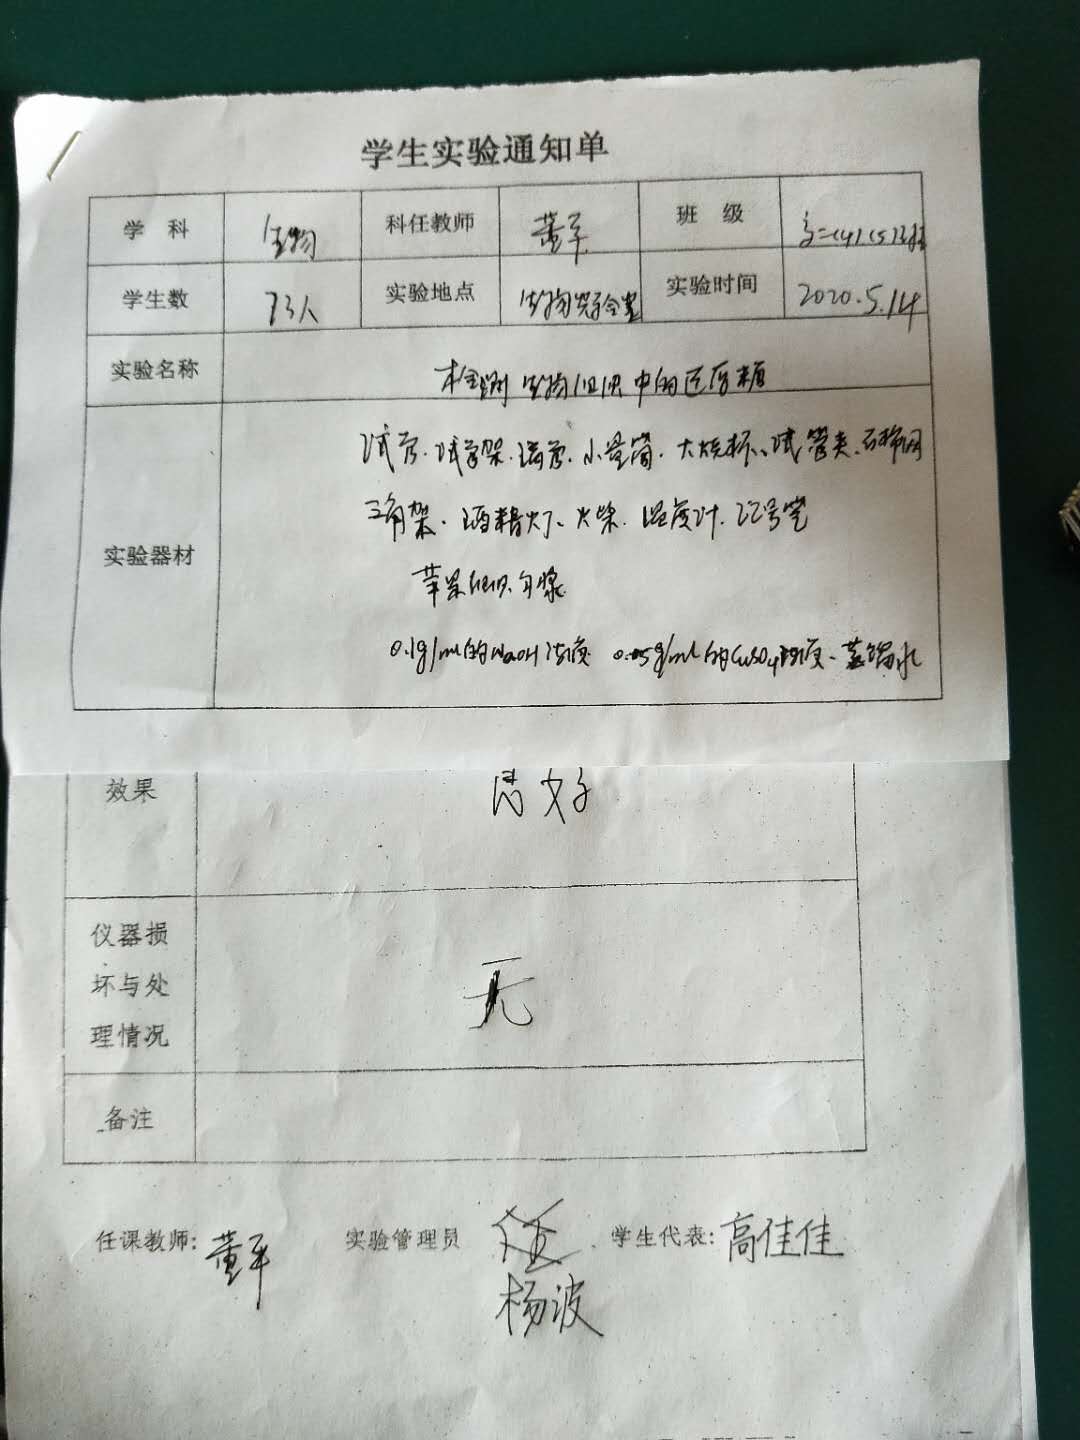 学生实验通知单
学科 生物 科任教师 董平 班级 高二(4)(5)班
学生数 73人 实验地点 生物实验室 实验时间 2020.5.14
实验名称 检测生物组织中的还原糖
试管、试管架、滴管、小量筒、大烧杯、试管夹、石棉网
三角架、酒精灯、火柴、温度计、记号笔
实验器材
苹果组织匀浆
0.1g/ml的NaOH溶液 0.05g/ml的CuSO4溶液、蒸馏水
效果 良好
仪器损
坏与处 无
理情况
备注
任课教师: 董平 实验管理员 学生代表: 高佳佳
杨波